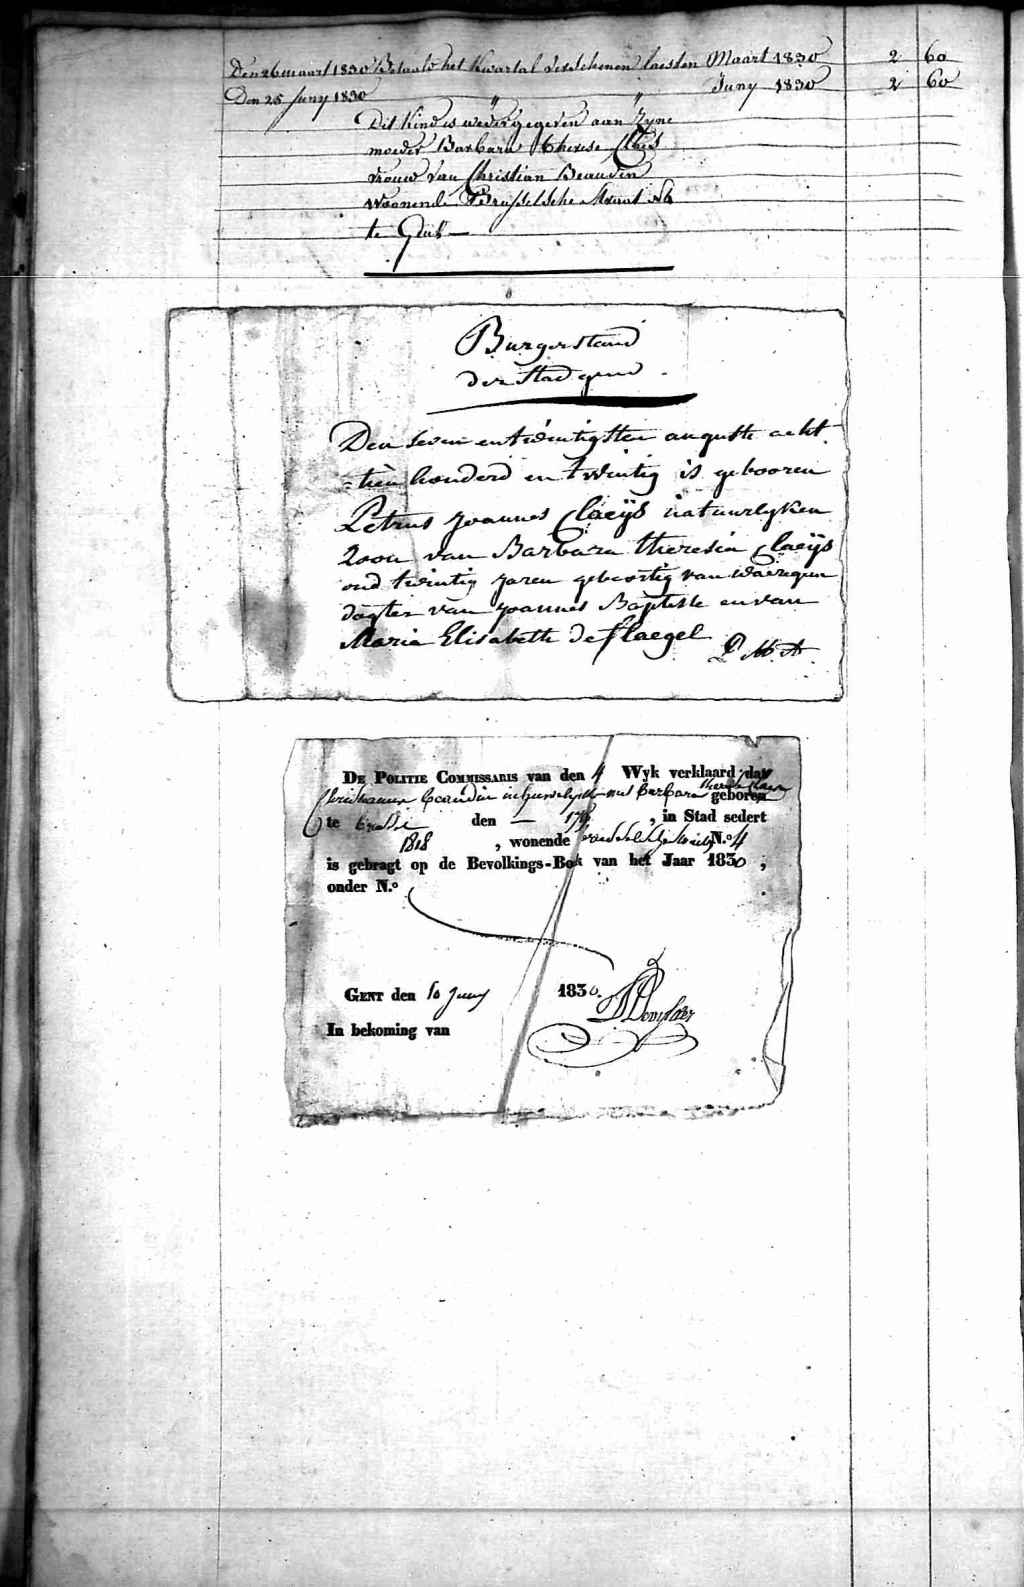 Den 26 maart 1830 Betaald het Kwartal verschenen laesten Maart 1830 2 60
Den 25 Juny 1830 " " Juny 1830 2 60
Dit Kind is wedergegeven aan Zyne
moeder Barbara Therese Claeis
vrouw van Christian Beaudin
woonende Brusselsche No
te Gend
Burgerstand
der Stad gend
Den seven en twintigsten auguste acht-
-tien honderd en twintig is gebooren
Petrus Joannes Claeÿs natuurlyken
Zoon van Barbara theresia Claeÿs
oud twintig Jaren geboortig van waeregem
dogter van Joannes Baptiste en van
Maria Elisabeth de flaegel
De Politie Commissaris van den 4 Wyk verklaard dat
Beaudin in huwelyk met Barbara Therese Claeys geboren
te den — 179 , in Stad sedert
1818 , wonende N.o 4
is gebragt op de Bevolkings-Bok van het Jaar 1830 ;
onder N.o
Gent den 10 Juny 1830.
In bekoming van